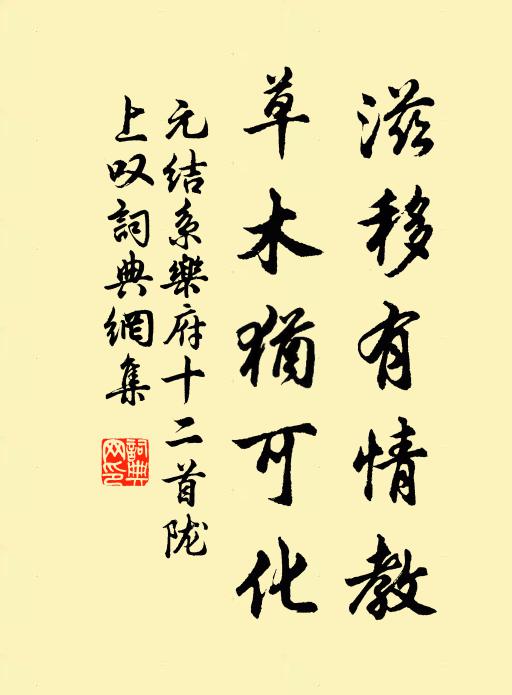 滋移有情教
草木猶可化
元结系樂府十二首陇
上叹詞典網集
詞典
网印